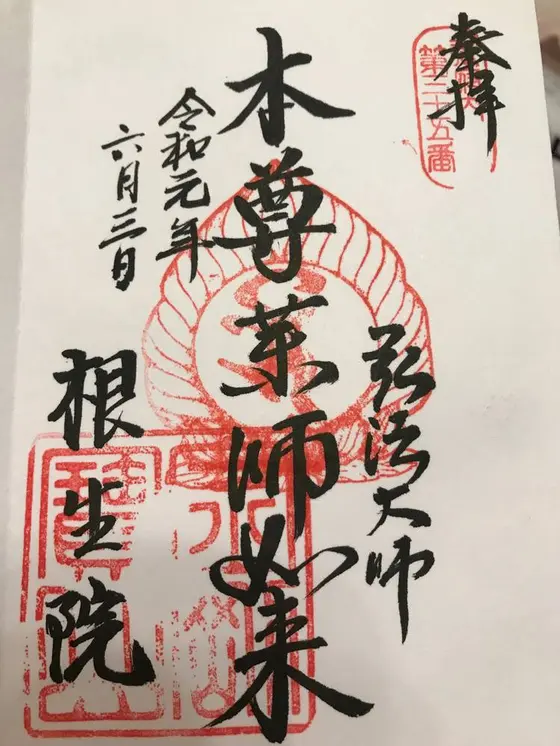 奉拝
第二十五番
弘法大師
本尊薬師如来
令和元年
六月三日
根生院